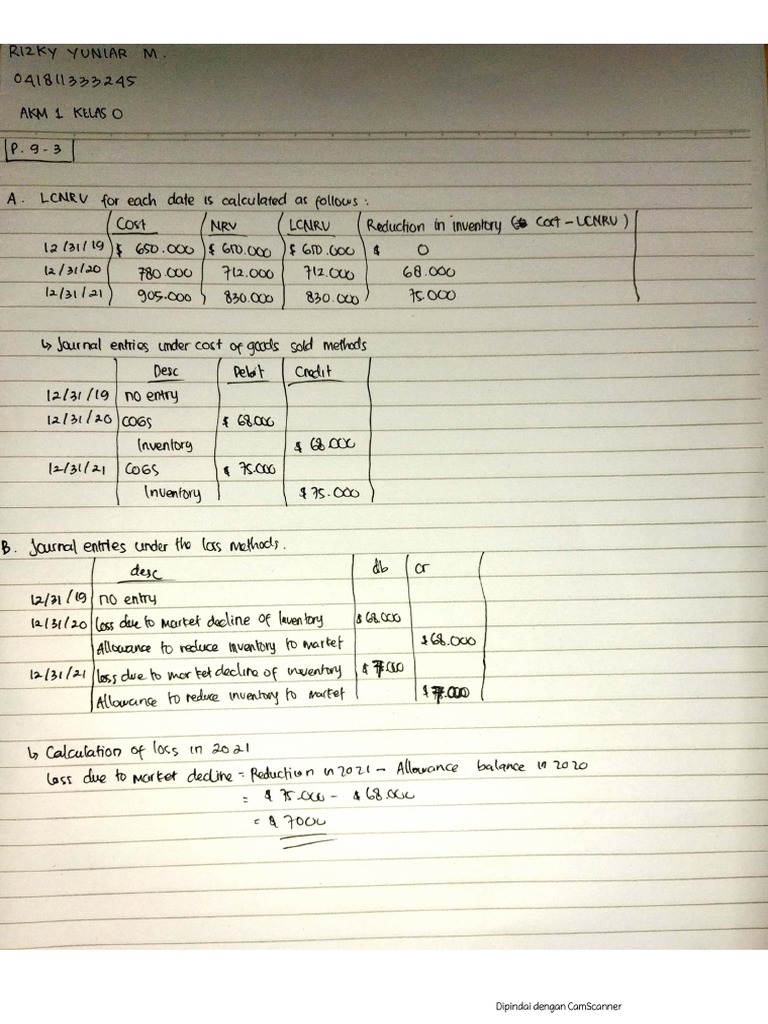 RIZKY YUNIAR M.
041811333245
AKM 1 KELAS O
P. 9-3
A. LCNRV for each date is calculated as follows :
Cost NRV LCNRV Reduction in inventory ( Cost - LCNRV )
12/31/19 $ 650.000 $ 650.000 $ 650.000 $ 0
12/31/20 780.000 712.000 712.000 68.000
12/31/21 905.000 830.000 830.000 75.000
↳ Journal entries under cost of goods sold methods
Desc Debit Credit
12/31/19 no entry
12/31/20 COGS $ 68.000
Inventory $ 68.000
12/31/21 COGS $ 75.000
Inventory $ 75.000
B. Journal entries under the loss methods.
desc db cr
12/31/19 no entry
12/31/20 Loss due to market decline of Inventory $ 68.000
Allowance to reduce inventory to market $ 68.000
12/31/21 Loss due to market decline of inventory $
Allowance to reduce inventory to market $
↳ Calculation of loss in 2021
Loss due to market decline = Reduction in 2021 - Allowance balance in 2020
= $ 75.000 - $ 68.000
= $ 7000
Dipindai dengan CamScanner